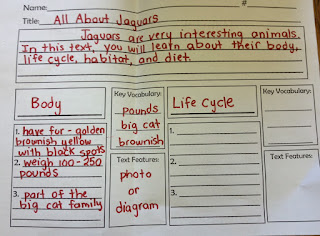 Name: #
Title: All About Jaguars
Jaguars are very interesting animals.
In this text, you will learn about their body,
life cycle, habitat, and diet.
Body
1. have fur - golden
brownish yellow
with black spots
2. weigh 100-250
pounds
3. part of the
big cat family
Key Vocabulary:
pounds
big cat
brownish
Text Features:
photo
or
diagram
Life Cycle
1.
2.
3.
Key Vocabulary:
Text Features: